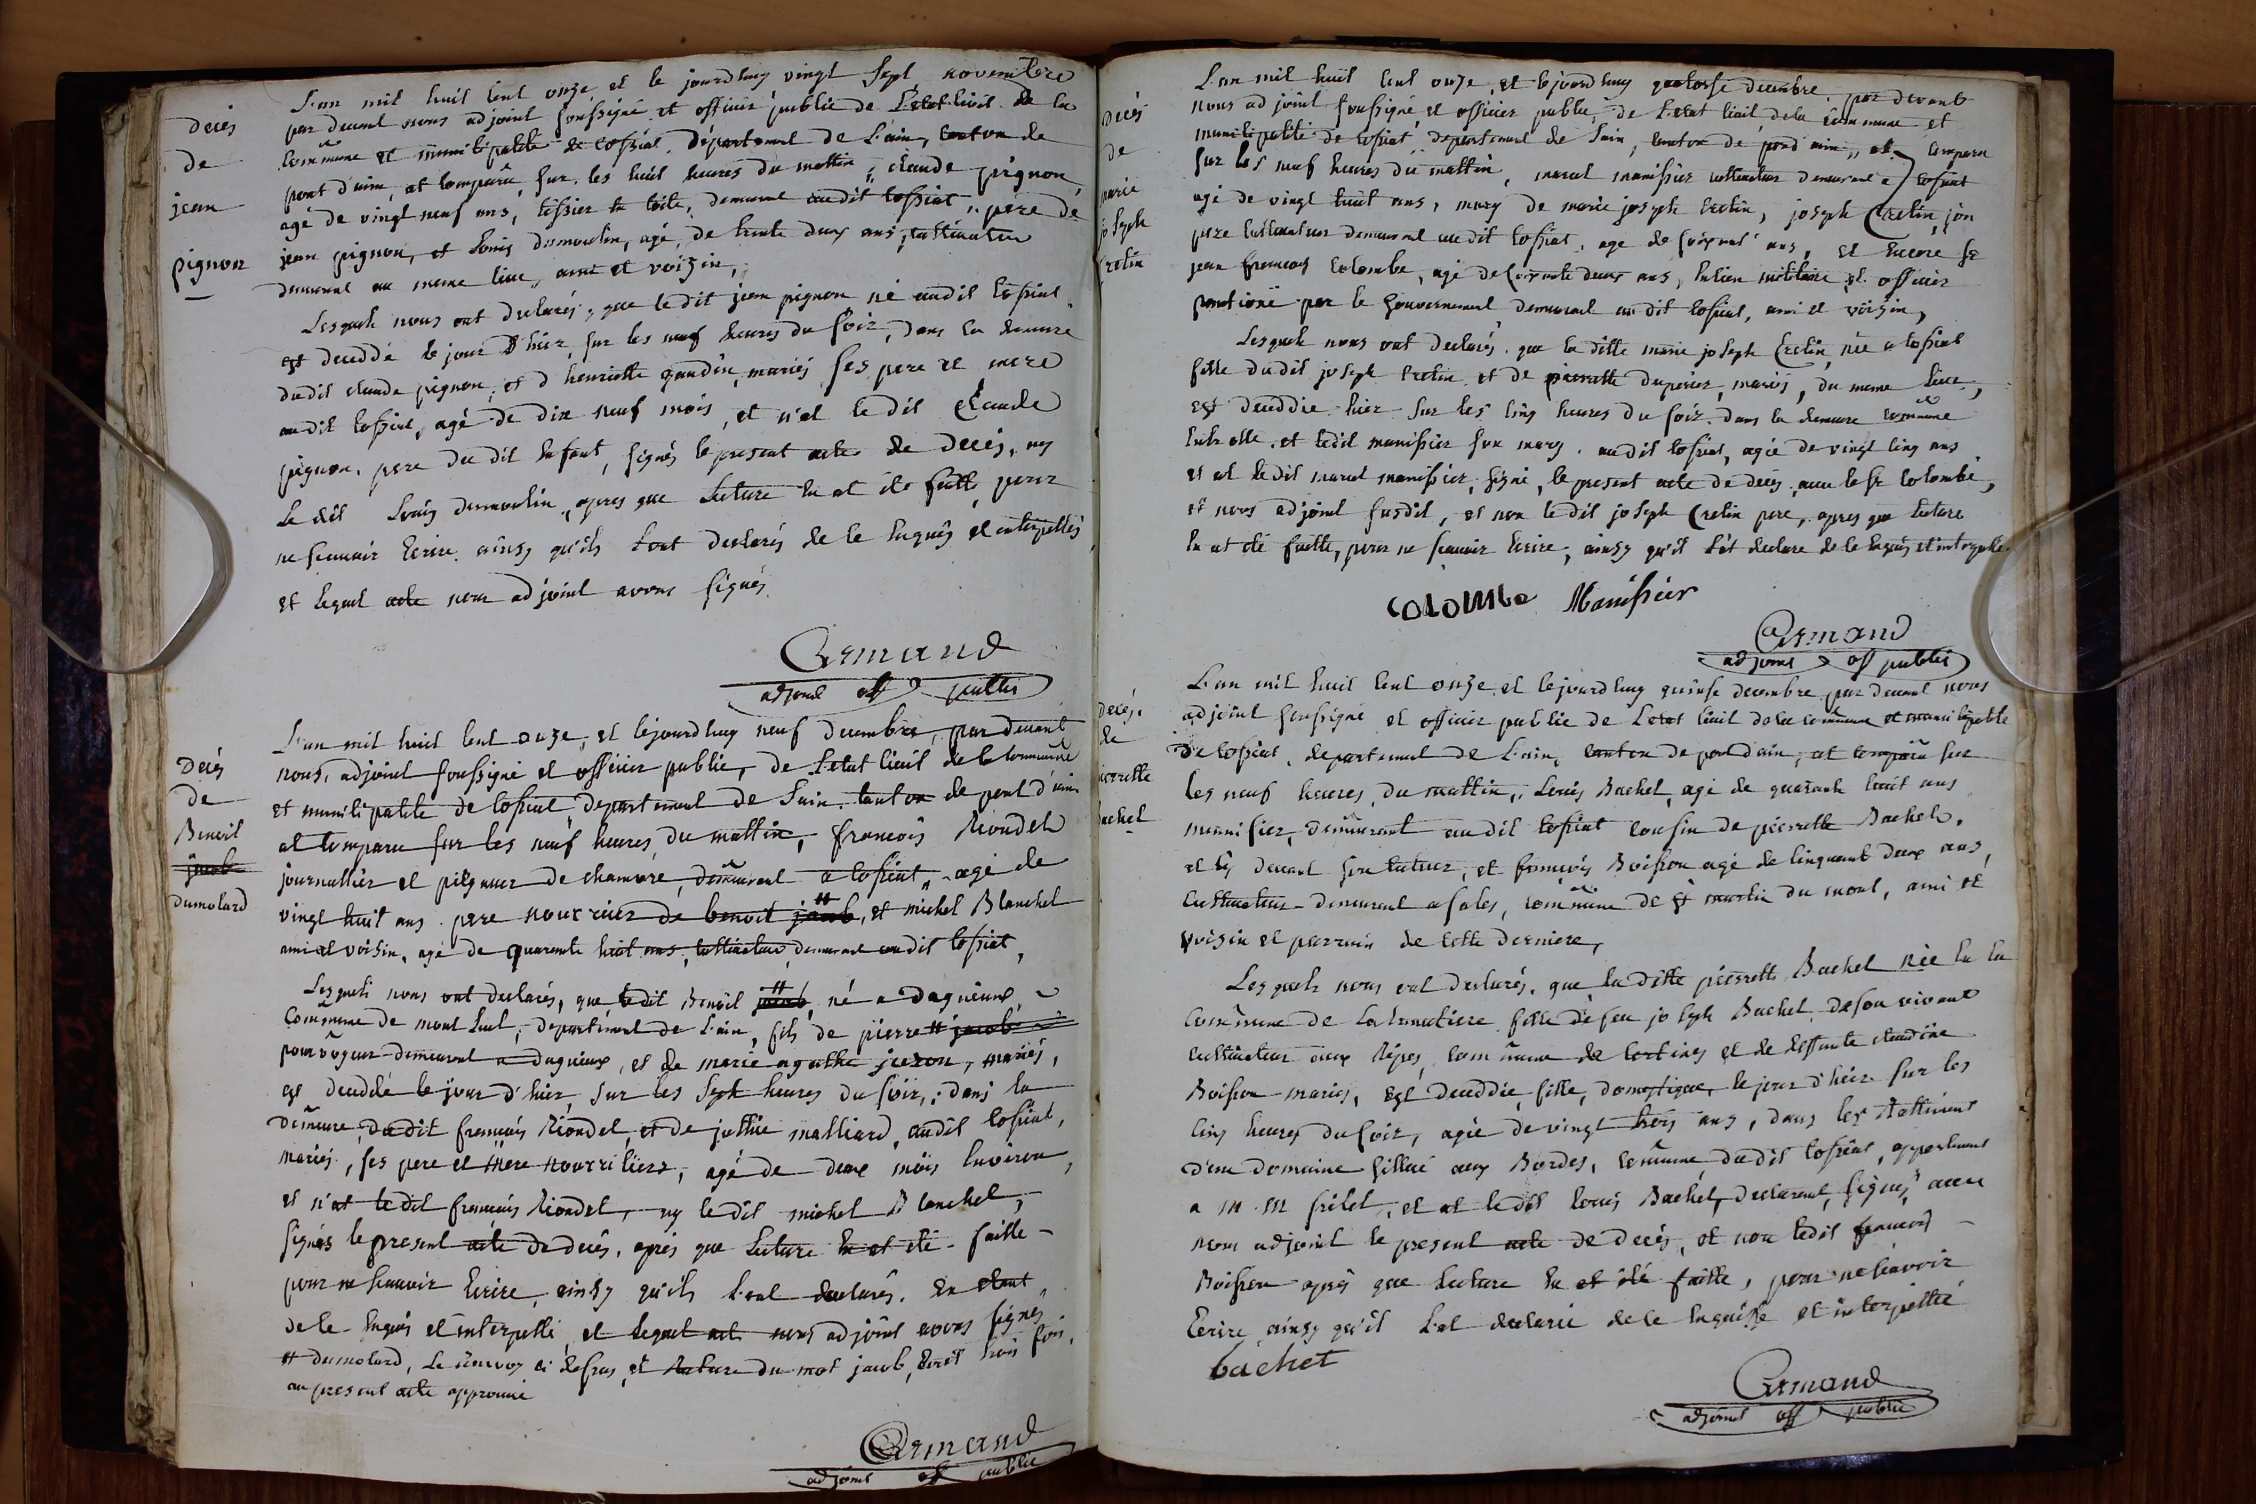 Décés
de
jean
pignon
L'an mil huit cent onze et le jourdhuy vingt sept novembre
par devant nous adjoint soussigné et officier public de L'etat civil de la
commune et municipalité de cossiat, département de L'ain, canton de
pont d'ain, at comparu, sur les huit heures du mattin, claude pignon,
agé de vingt neuf ans, tissier en toile, demeurant audit cossiat, pere de
jean pignon, et Louis dumoulin, agé, de trente deux ans, cultivateur
demeurant au meme lieu, ami et voizin,
Lesquels nous ont declarés, que ledit jean pignon né audit cossiat,
est deceddé le jour d'hier, sur les neuf heures du soir, dans la demeure
dudit claude pignon, et d henriette gaudin, mariés, ses pere et mere
audit cossiat, agé de dix neuf mois, et n'at ledit Claude
pignon, pere du dit enfant, signés le present acte de decés, ny
Le dit Louis dumoulin, apres que Lecture en at été faitte, pour
ne scavoir Ecrire, ainsy qu'ils L'ont declarés de ce Enquis et interpellés
et lequel acte nous adjoint avons signés
Armand
adjoint off public
Décés
de
Benoit
jacob
dumolard
L'an mil huit cent onze, et lejourdhuy neuf decembre, par devant
nous, adjoint soussigné et officier public, de L'etat civil de la commune
et municipalité de cossiat, departement de L'ain, canton de pont d'ain
at comparu sur les neuf heures, du mattin, francois Riondel
journallier et peigneur de chanvre, demeurant a cossiat, agé de
vingt huit ans, pere nourricier de benoit jacob, et michel Blanchet
ami et voisin, agé de quarante huit ans, cultivateur, demeurant audit cossiat,
Lesquels nous ont declarés, que ledit Benoit jacob, né a Dagnieux,
Commune de mont Luel, departement de L'ain, fils de pierre # jacob
pourvoyeur demeurant a dagnieux, et de marie agathe jeron, mariés,
est deceddé le jour d'hier, sur les Sept heures du soir, dans la
Demeure, dudit francois Riondel, et de jullie malliard, audit cossiat,
mariés, ses pere et mere nourriciere, agé de deux mois Environ,
et n'at ledit francois Riondel, ny ledit michel Blanchet,
signés le present acte de decés, aprés que Lecture en at été faitte
pour ne scavoir Ecrire, ainsy qu'ils L'ont declarés. En etant
de ce Enquis et interpellé, et lequel acte nous adjoint avons signés
# dumolard, Le renvoy ci dessus, et Rature du mot jacob, Ecrit trois fois,
au present acte approuvé
Armand
adjoint off public
Décés
de
marie
joseph
Cretin
L'an mil huit cent onze, et lejourdhuy quatorse decembre, par devant
nous adjoint soussigné, et officier public, de L'etat civil, de la commune et
municipalité de cossiat, departement de L'ain, canton de pond'ain, at comparu
sur les neuf heures du mattin, marcel manissier cultivateur demeurant a cossiat
agé de vingt huit ans, mary de marie joseph Cretin, joseph Cretin, son
pere cultivateur demeurant audit cossiat, agé de soixante ans, et Encore sr
jean francois Colombe, agé de soixante deux ans, Encien militaire et officier
pentioné par le Gouvernement demeurant audit cossiat, ami et voizin,
Lesquels nous ont declarés, que la ditte marie joseph Cretin, née a cossiat
fille dudit joseph Cretin et de pierrette Duperier, mariés, du meme Lieu,
est deceddée hier sur les cinq heures du soir, dans la demeure commune
Entr elle, et ledit manissier son mary, audit cossiat, agée de vingt cinq ans
et at ledit marcel manissier, signé, le present acte de decés, avec le Sr Colombe,
et nous adjoint susdit, et non ledit joseph Cretin pere, apres que Lecture
en at été faitte, pour ne scavoir Ecrire, ainsy qu'il L'at declaré de ce Enquis et interpellé
COLOMbe Manissier
Armand
adjoint off public
Decés
de
pierrette
Bachet
L'an mil huit cent onze, et lejourdhuy quinse decembre, par devant nous
adjoint soussigné et officier public de L'etat civil de la commune et municipalité
de Cossiat, departement de L'ain, canton de pond'ain, at comparu sur
les neuf heures, du mattin, Louis Bachet, agé de quarante huit ans
menuisier, demeurant audit cossiat cousin de pierrette Bachet,
et cy devant son tuteur, et francois Boisson agé de cinquante deux ans,
cultivateur demeurant a sales, commune de st martin du mont, ami et
voisin et parrain de cette derniere,
Lesquels nous ont declarés, que la ditte pierrette Bachet née en la
Commune de Latranciere fille de feu joseph Bachet, de son vivant
cultivateur aux Ripes, commune de certines et de deffunte claudine
Boisson mariés, Est deceddée, fille, domestique, le jour d'hier sur les
cinq heures du soir, agée de vingt trois ans, dans les Battiment
d'un domaine sittué aux Bordes, commune dudit cossiat, appartenant
a M.M frilet, et at ledit Louis Bachet, declarant, signés, avec
nous adjoint le present acte de decés, et non ledit francois
Boisson aprés que Lecture en at été faitte, pour ne scavoir
Ecrire, ainsy qu'il L'at declaré de ce Enquis et interpellé
bachet
Armand
adjoint off public